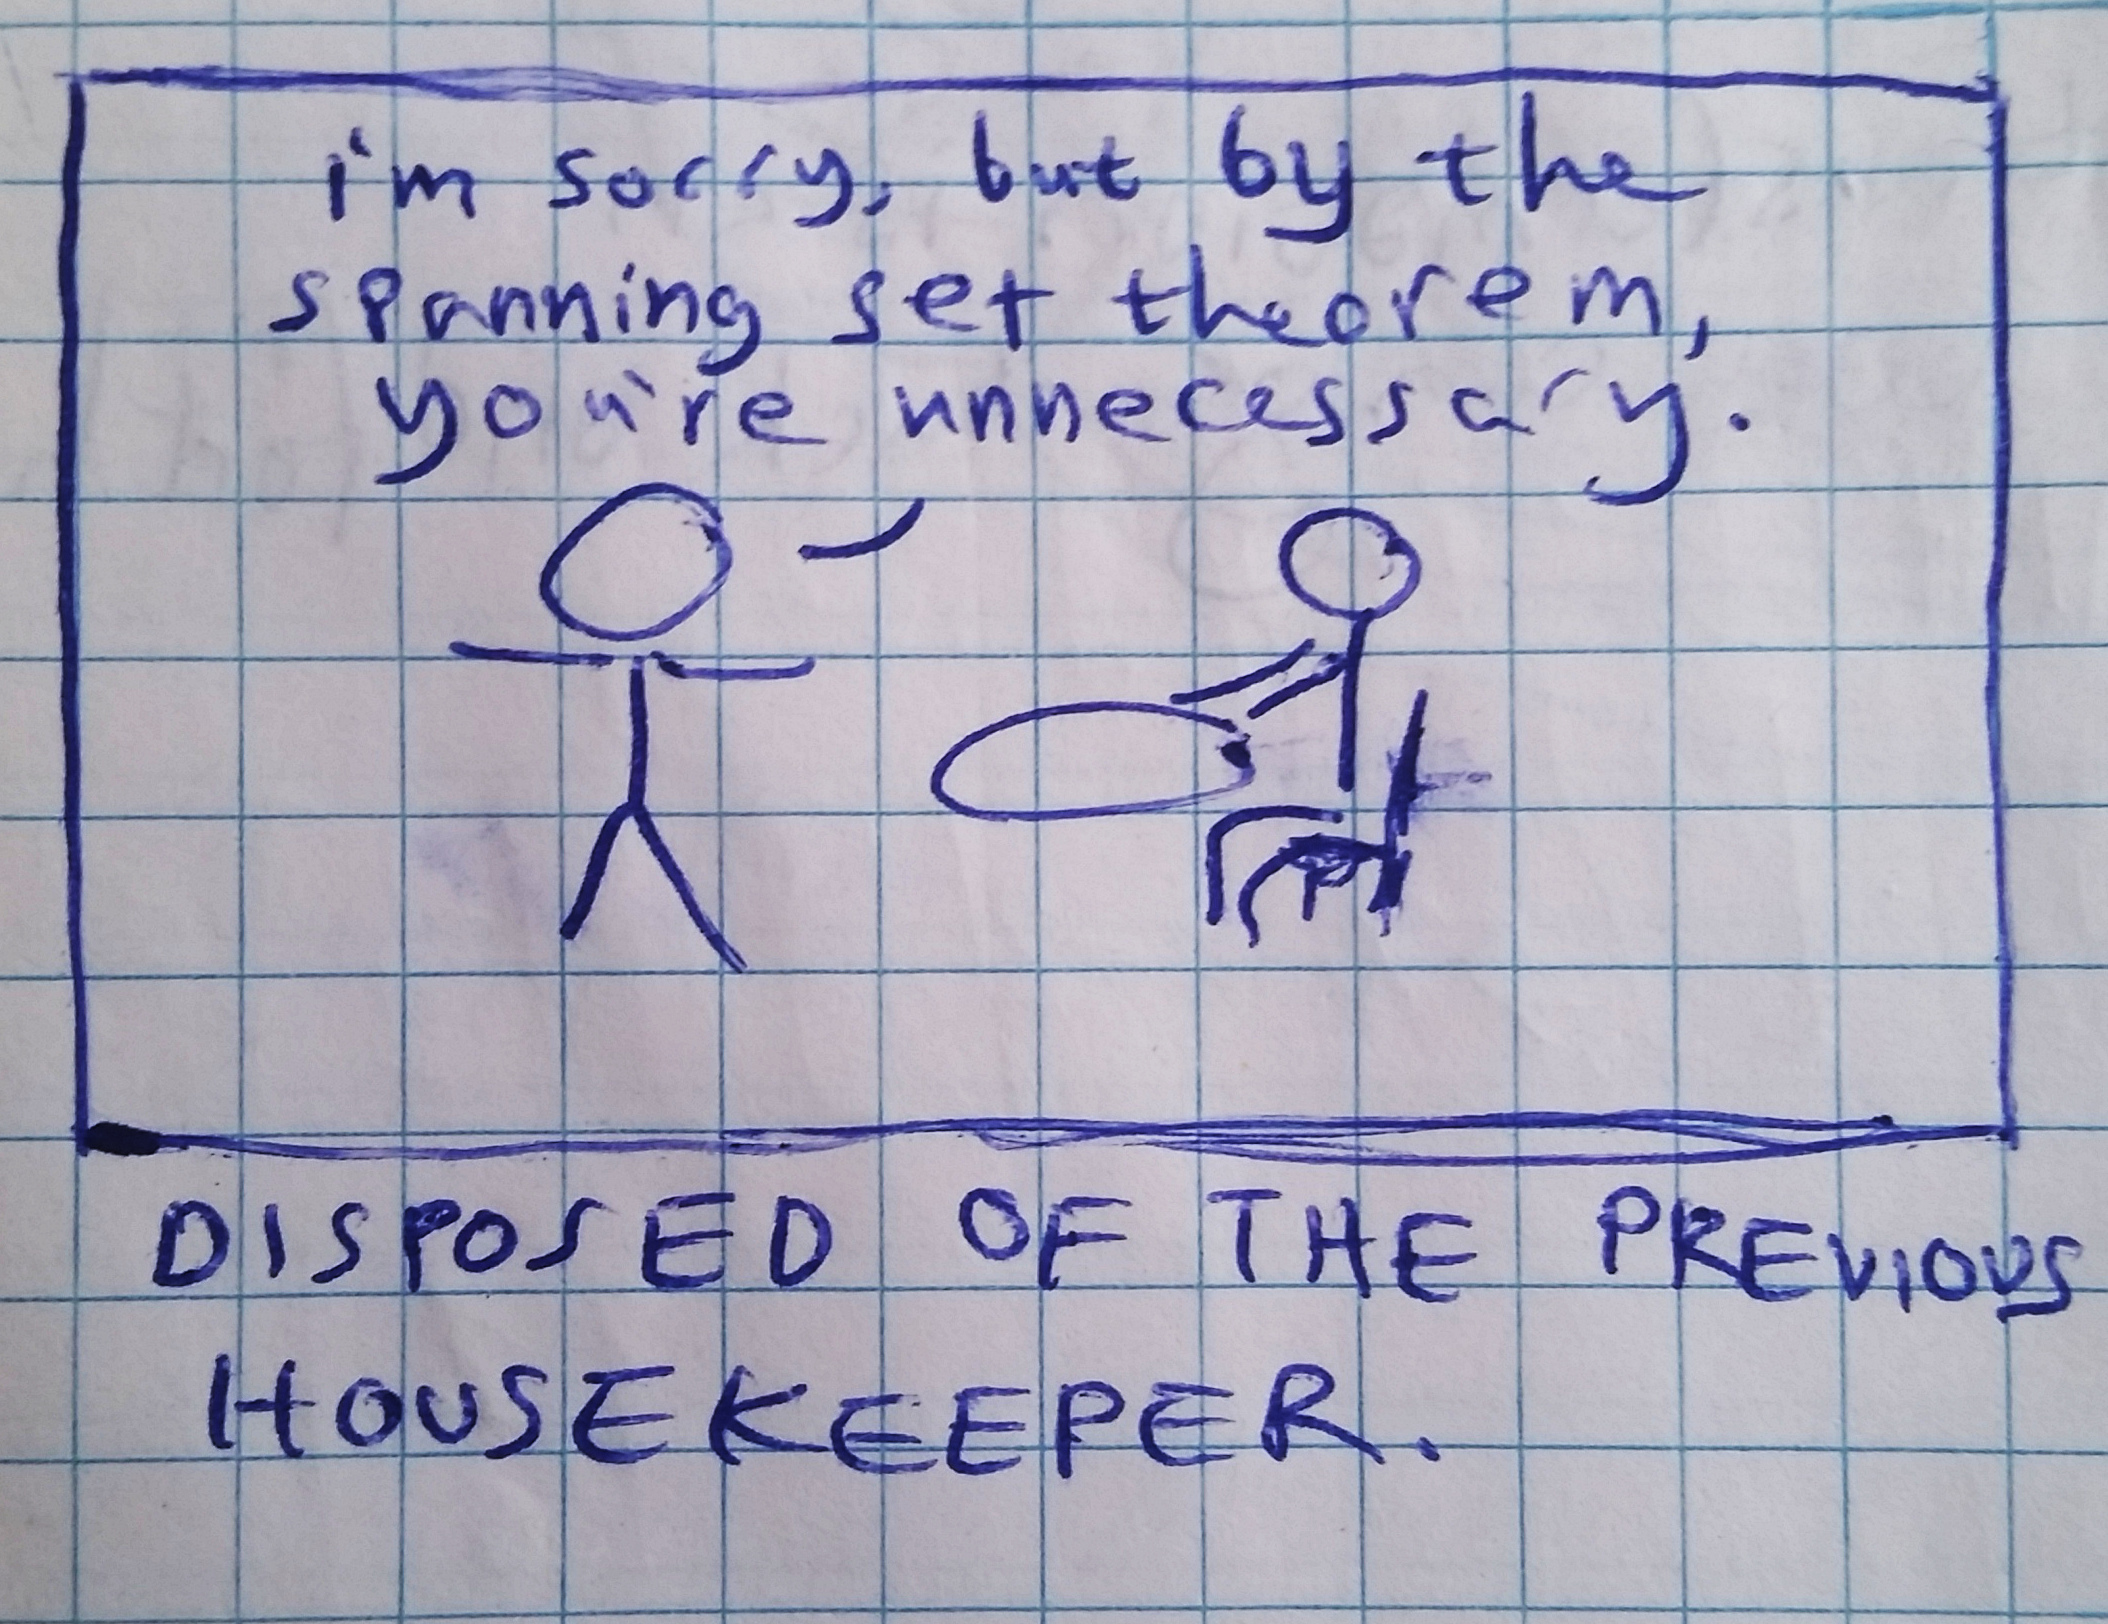 i'm sorry, but by the
spanning set theorem,
you're unnecessary.
DISPOSED OF THE PREVIOUS
HOUSEKEEPER.